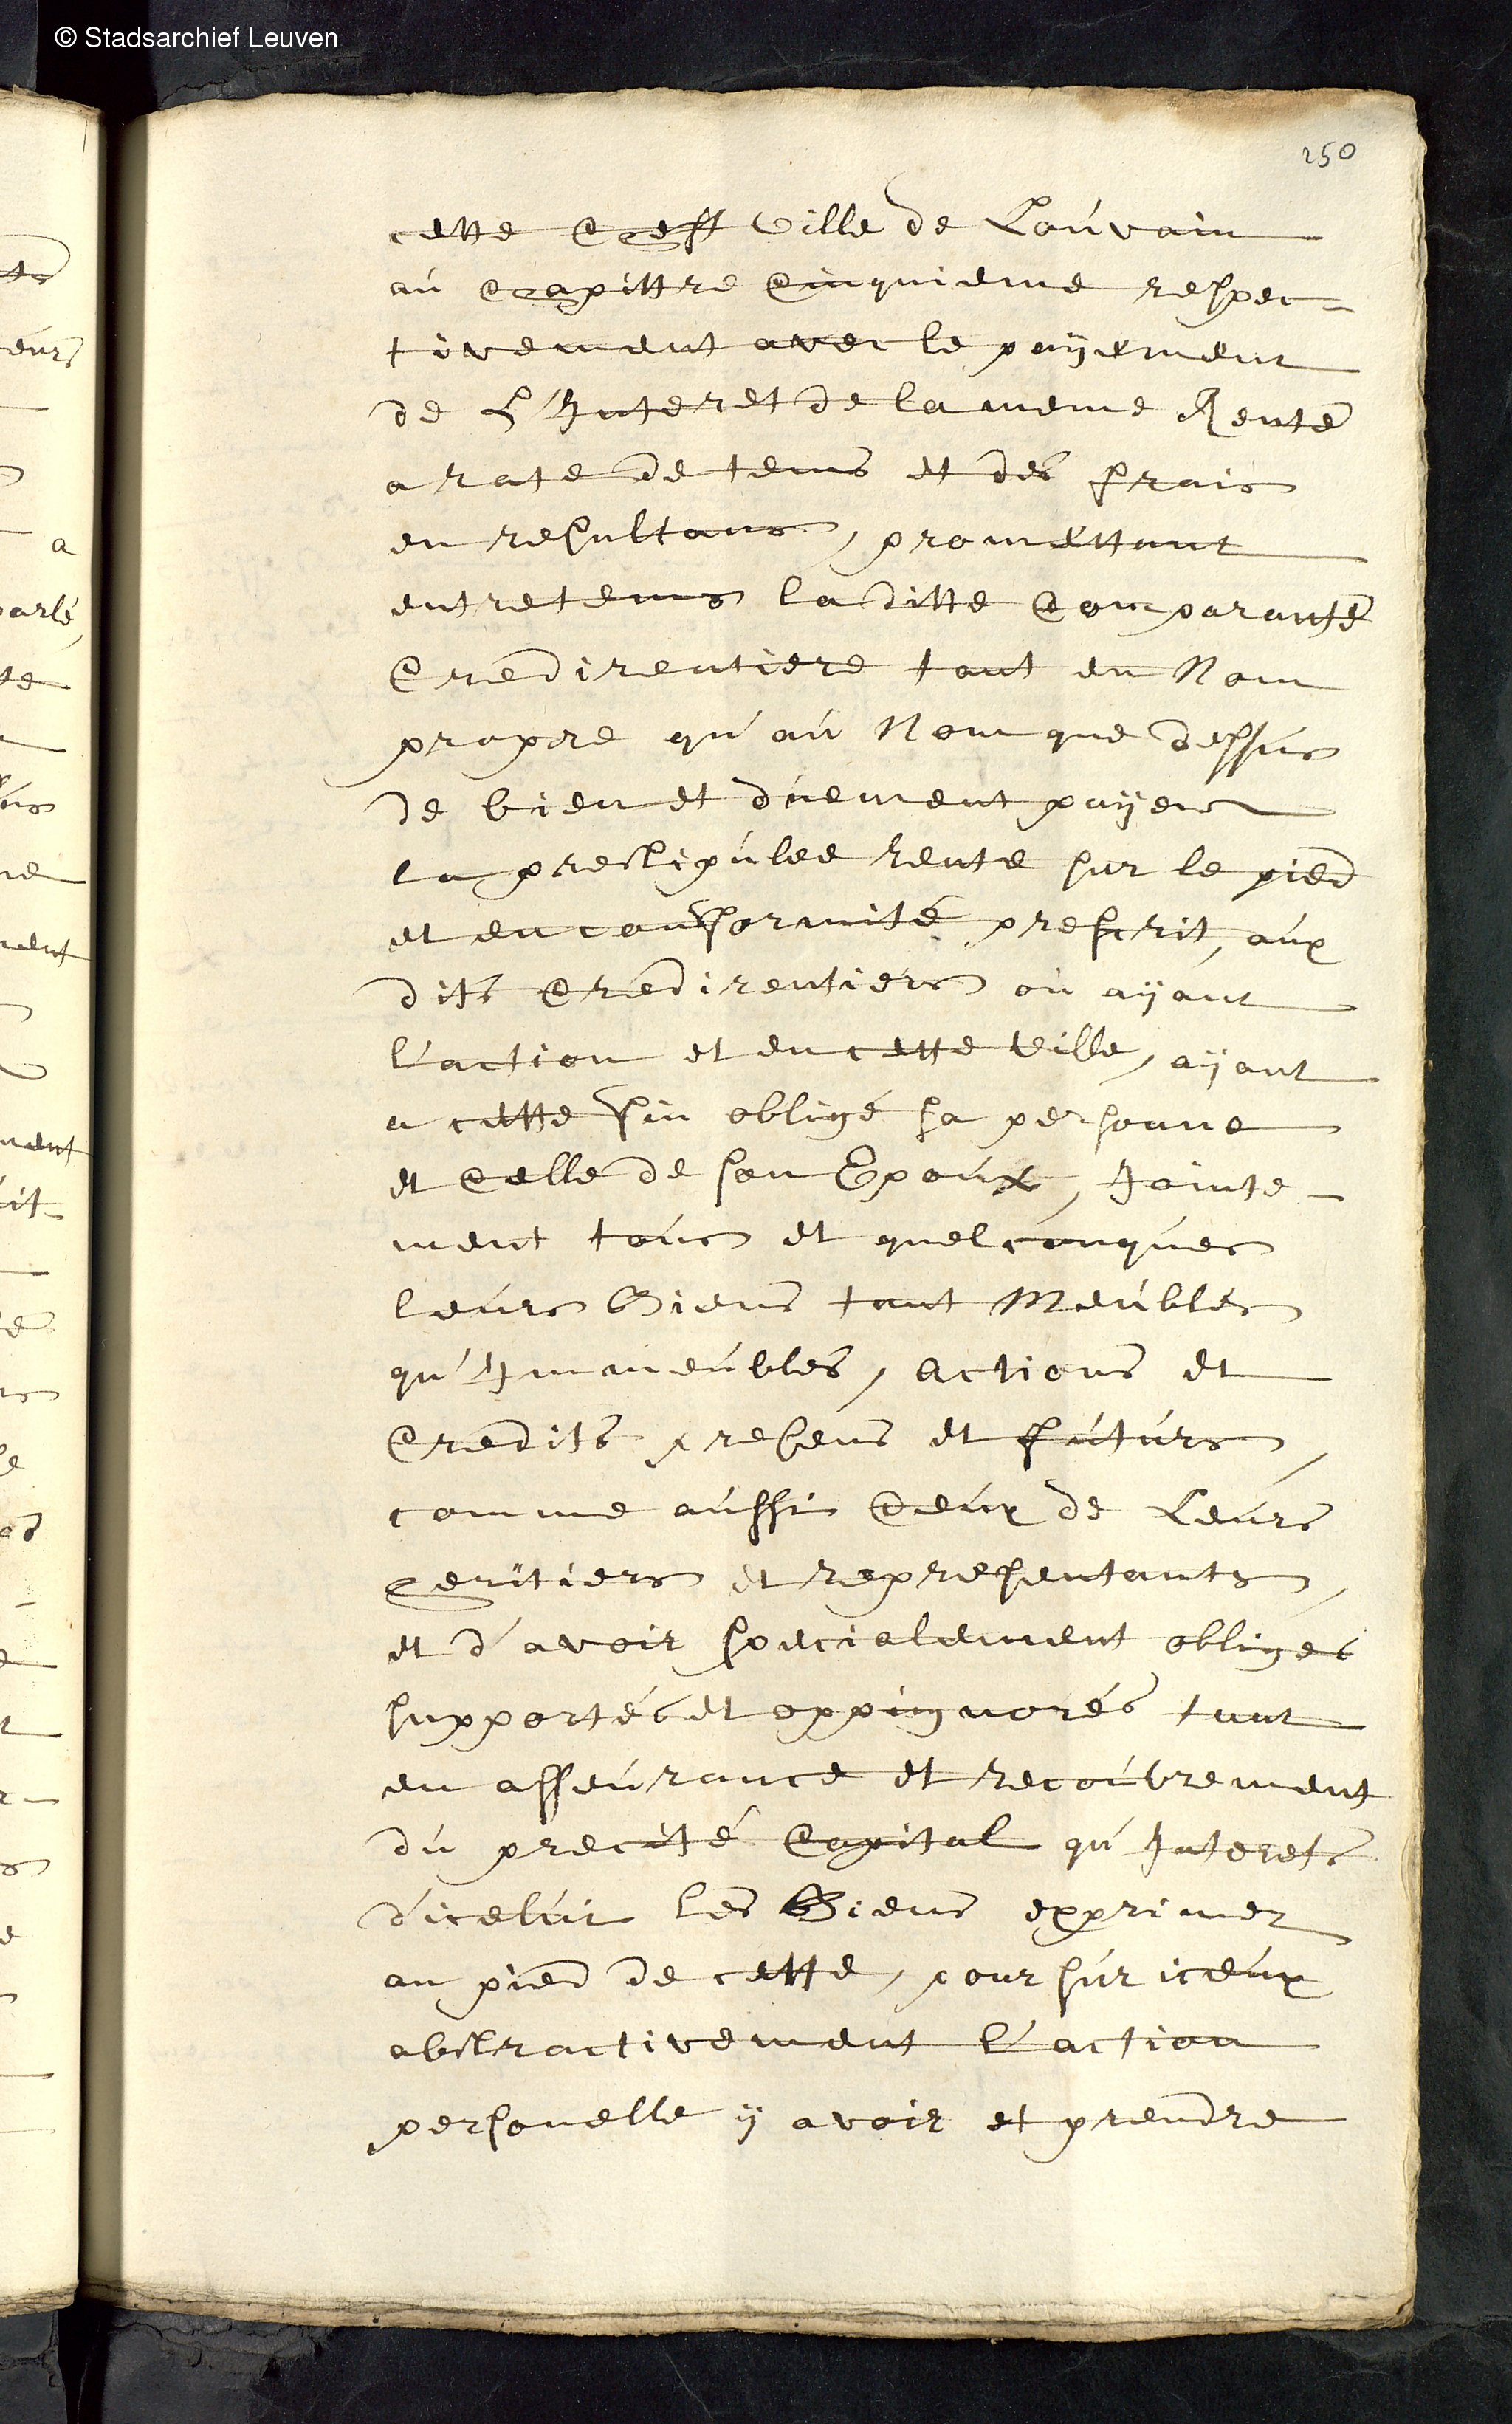 © Stadsarchief Leuven
250
cette Chef Ville de Louvain
au Chapittre Cinquieme respec=
tivement avec le payement
de L'Interet de la meme Rente
a rate de tems et des frais
en resultans, promettant
entretems la ditte Comparante
Credirentiere tant en Nom
propre qu'au Nom que dessus
de bien et dùement payer
la prestipulée rente sur le pied
et en conformité prescrit, aux
dits Credirentiers où ayant
l'action et en cette Ville, ayant
a cette fin obligé sa personne
et Celle de son Epoux, Jointe-
ment tous et quelconques
leurs Biens tant Meubles
qu'Immeubles, actions et
Credits presens et futurs,
comme aussi Ceux de Leurs
heritiers et representants,
et d'avoir specialement obligés
supportés et oppignorés tant
en asseurance et recouvrement
du precité Capital qu'Interets
d'icelui les Biens exprimez
au pied de cette, pour sur iceux
abstractivement l'action
personelle y avoir et prendre